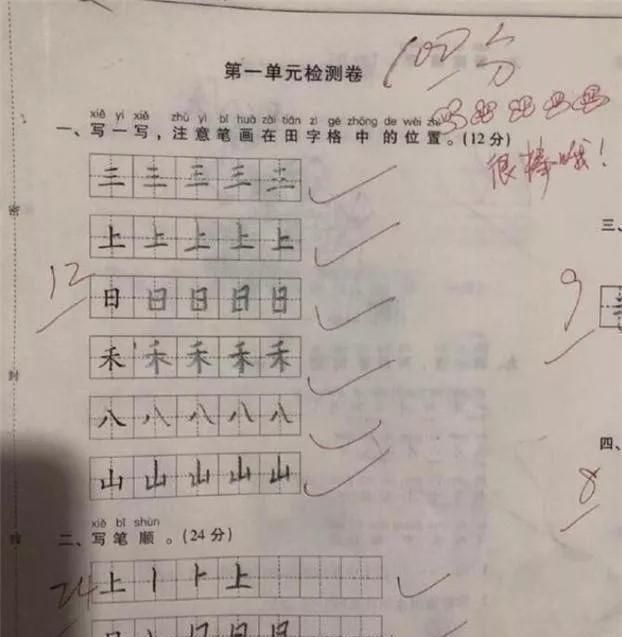 第一单元检测卷
100分
xiě yi xiě zhù yì bǐ huà zài tián zì gé zhōng de wèi zhi
一、写一写，注意笔画在田字格中的位置。(12分)
很棒哦！
三 三 三 三 三
上 上 上 上 上
12
日 日 日 日 日
禾 禾 禾 禾 禾
八 八 八 八 八
山 山 山 山 山
xiě bǐ shùn
二、写笔顺。(24分)
24
上 丨 ⺊ 上
三、
9
四、
8
密
封